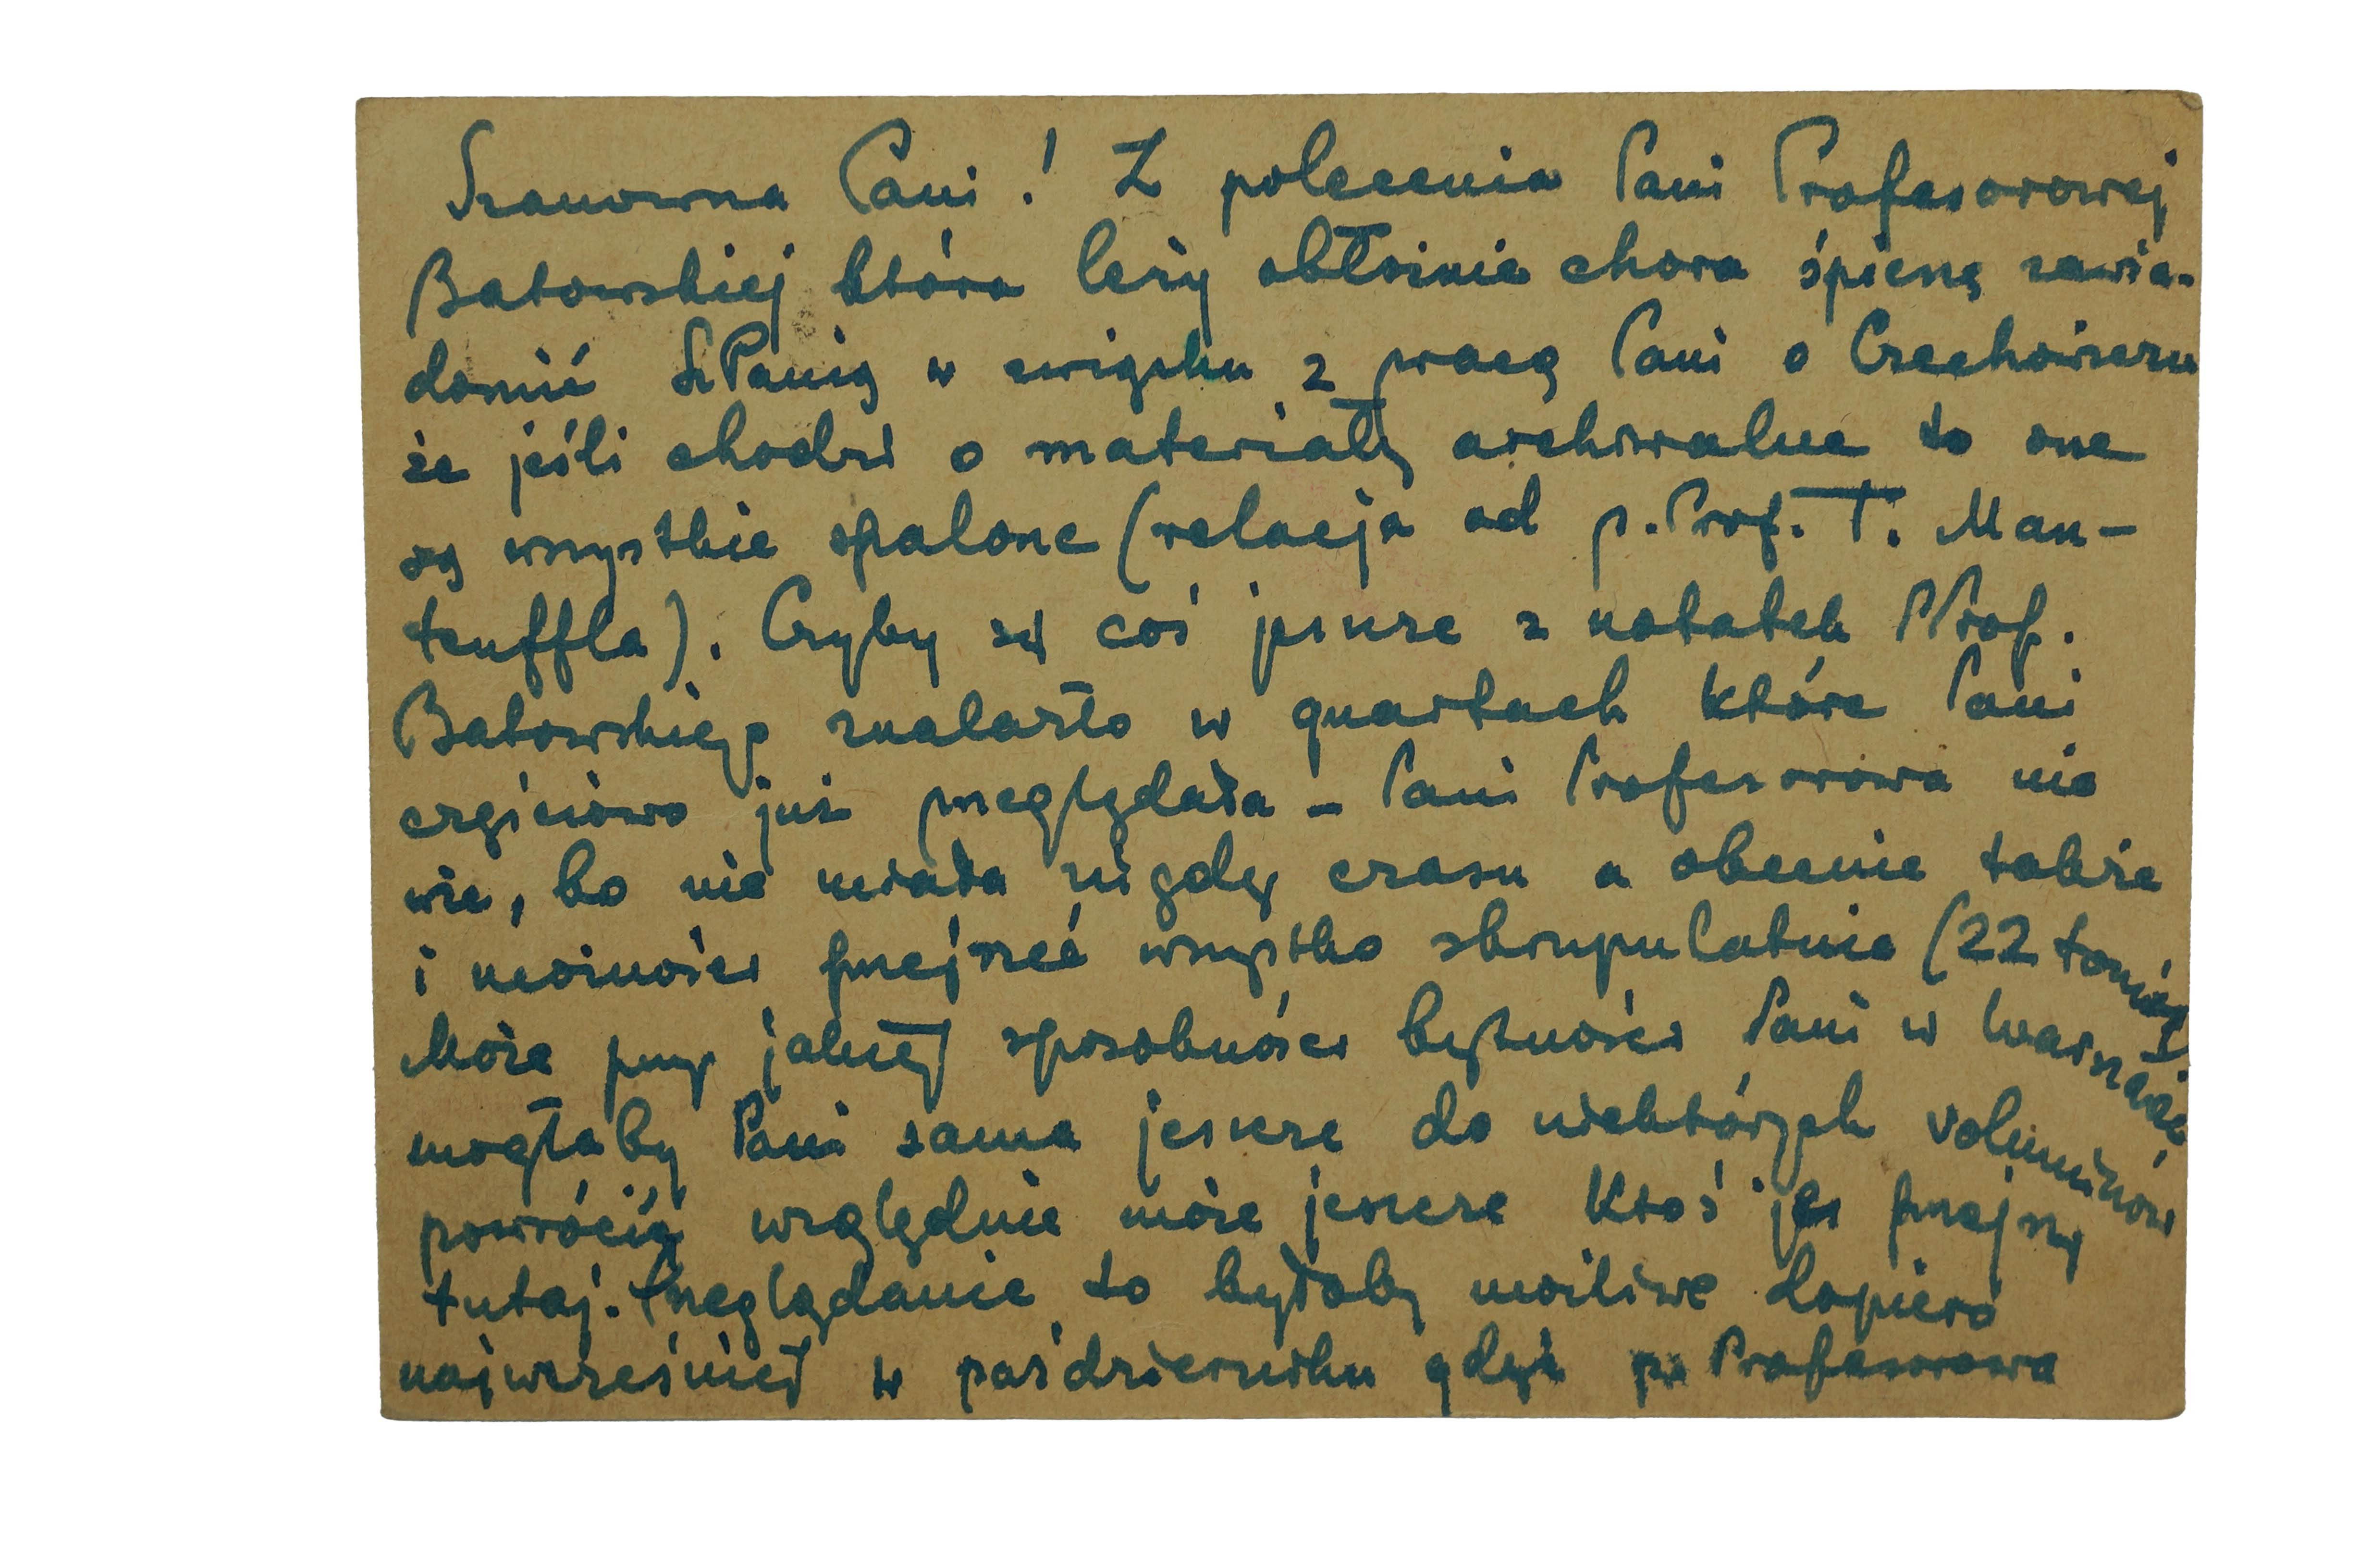 Szanowna Pani! Z polecenia Pani Profesorowej
Batowskiej która leży obłożnie chora śpieszę zawia-
domić SzPanią w związku z pracą Pani o Czechowiczu
że jeśli chodzi o materiały archiwalne to one
są wszystkie spalone (relacja od p. Prof. T. Man-
teuffla). Czyby się coś jeszcze z notatek PProf.
Batowskiego znalazło w quartach które Pani
częściowo już przeglądała – Pani Profesorowa nie
wie, bo nie miała nigdy czasu a obecnie także
i możności przejrzeć wszystko skrupulatnie (22 tomów)
Może przy jakiejś sposobności bytności Pani w Warszawie
mogłaby Pani sama jeszcze do niektórych voluminów
powrócić względnie może jeszcze ktoś je przejrzy
tutaj. Przeglądanie to byłoby możliwe dopiero
najwcześniej w październiku gdyż p. Profesorowa